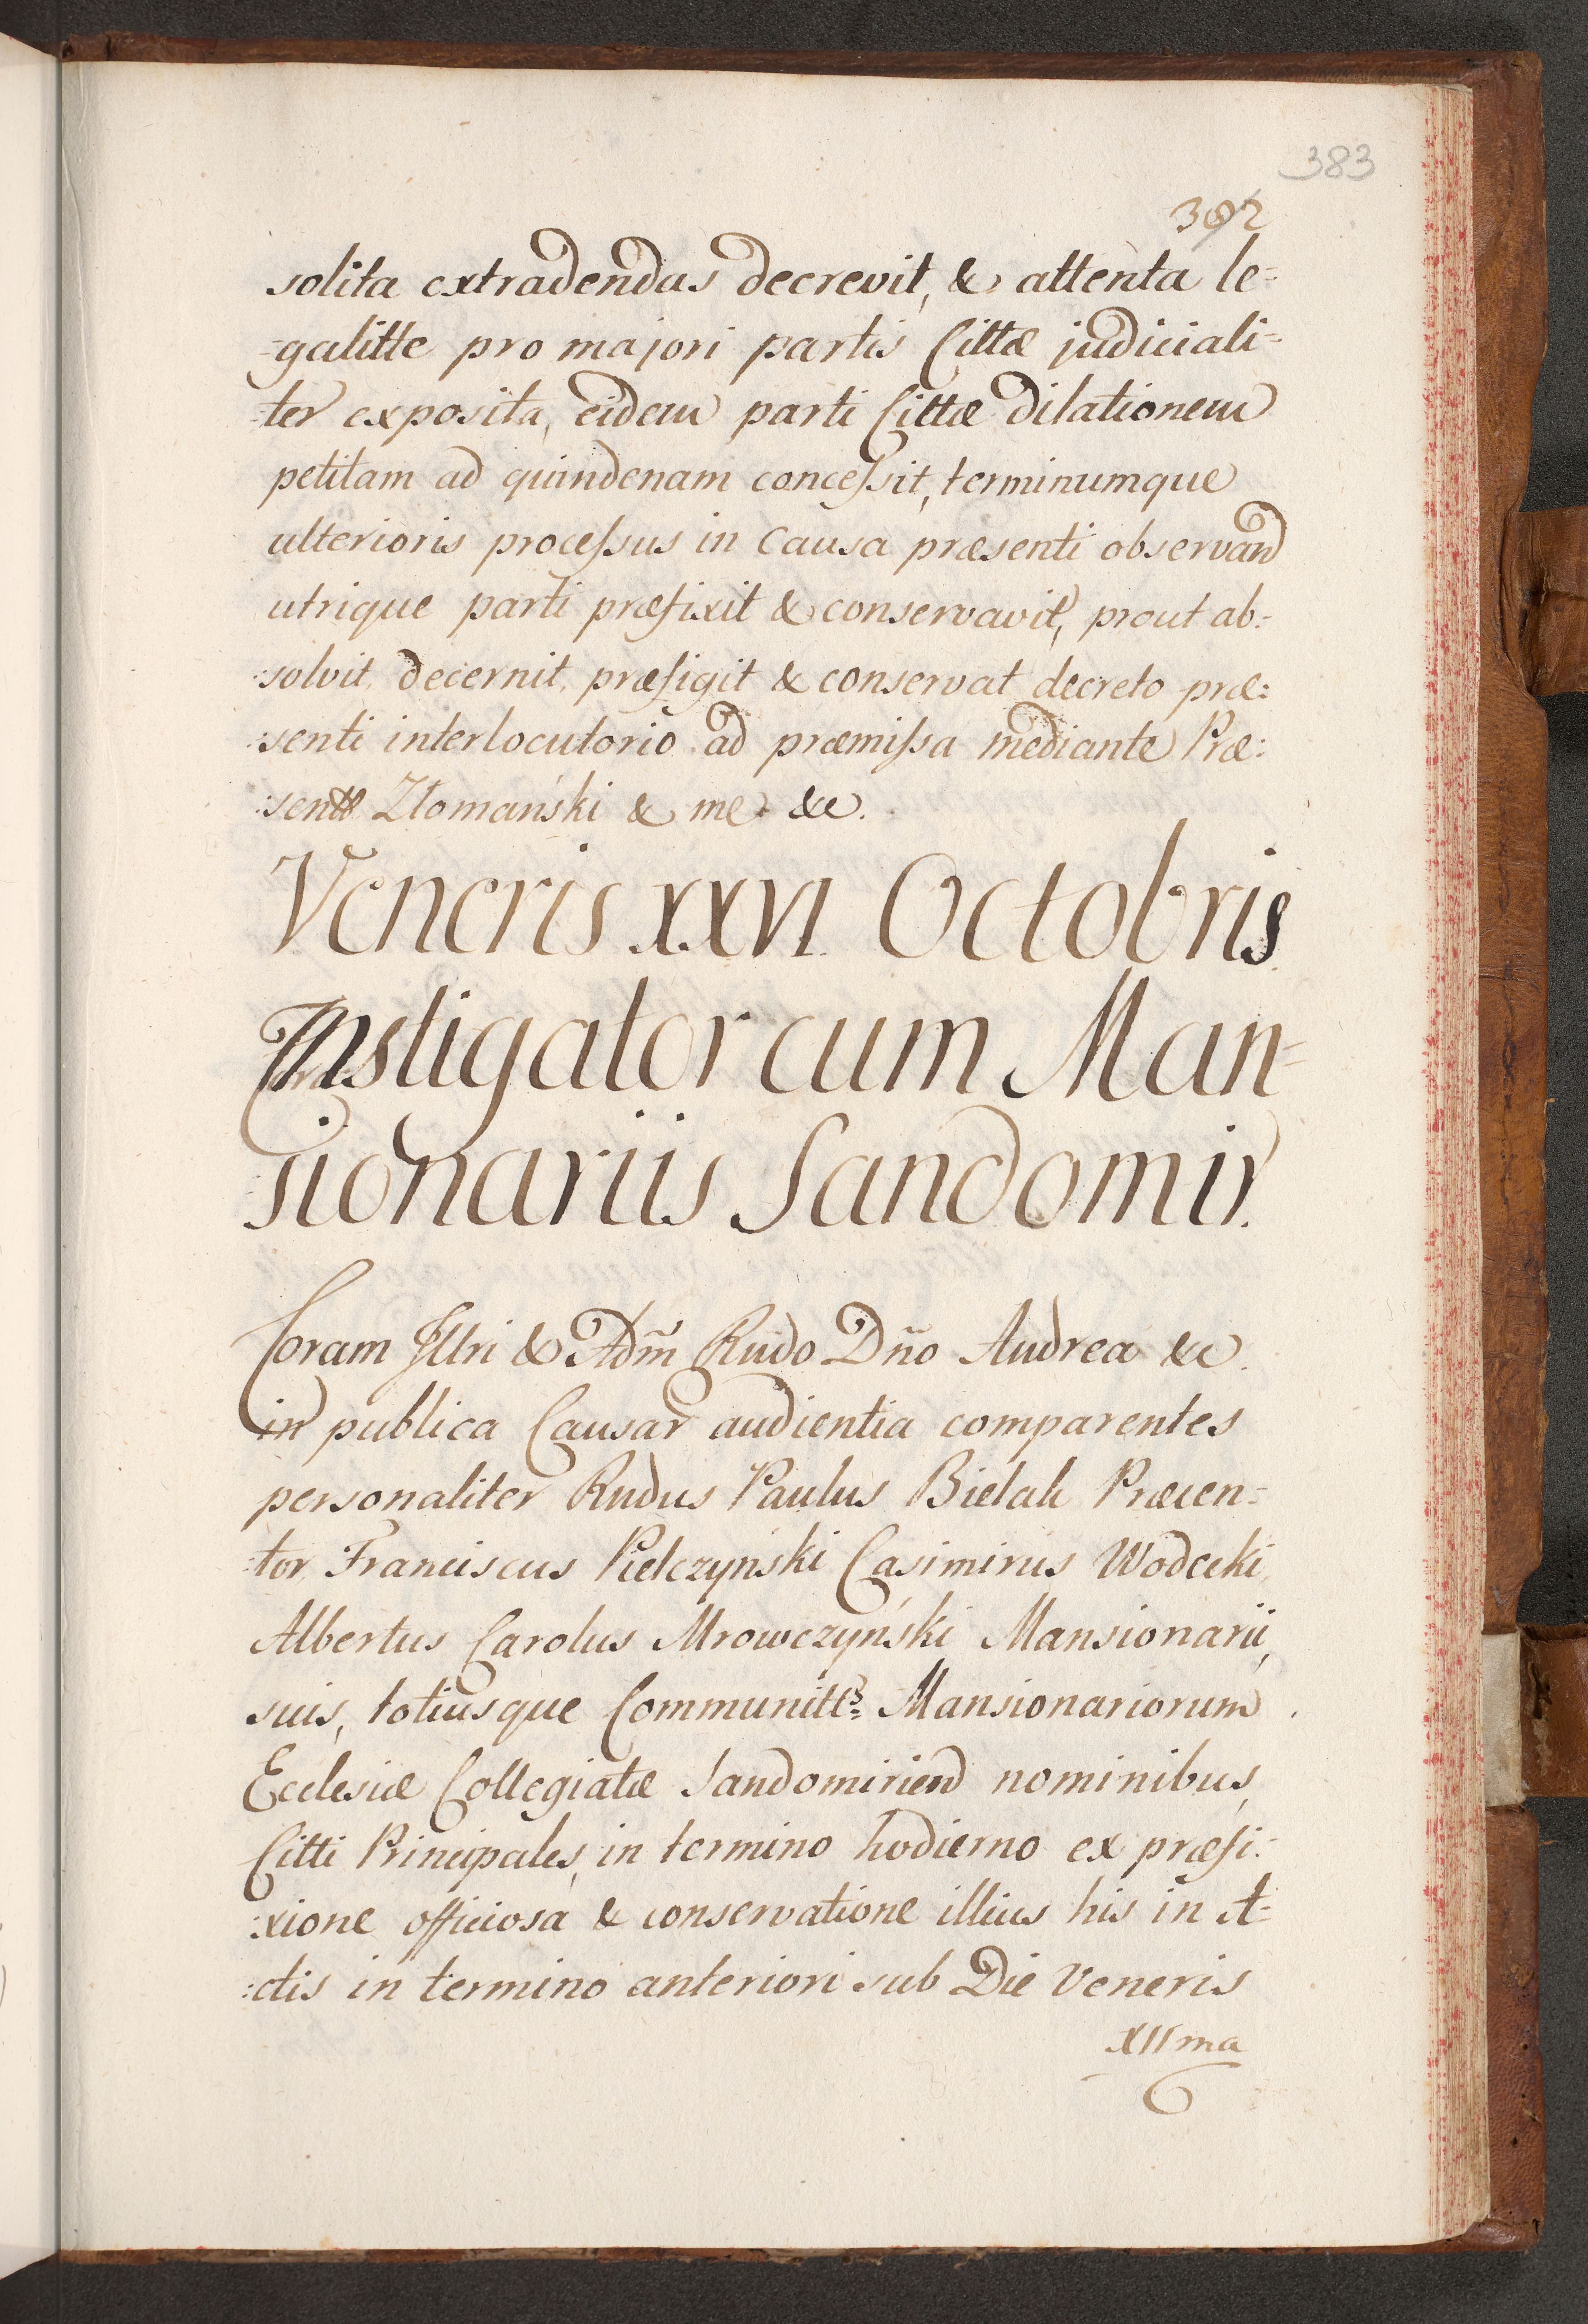 383
392
solita extradendas decrevit, & attenta le=
=galitte pro majori partis Cittæ judiciali=
=ter exposita, eidem parti Cittæ dilationem
petitam ad quindenam concessit, terminumque
ulterioris processus in causa præsenti observand
utrique parti præfixit & conservavit, prout ab=
=solvit, decernit, præfigit & conservat decreto præ=
=senti interlocutorio ad præmissa mediante Præ=
=sentt Złomański & me &c.
Veneris XXVI Octobris
Instigator cum Man=
sionariis Sandomir.
Coram Illri & Adm̃ Rndo Dño Andrea &c.
in publica Causar audientia comparentes
personaliter Rndus Paulus Bielak Præcen=
=tor, Franciscus Pielczyński Casimirus Wodecki,
Albertus Carolus Mrowczyński Mansionarii,
suis, totiusque Communitts Mansionariorum
Ecclesiæ Collegiatæ Sandomiriend nominibus,
Citti Principales, in termino hodierno ex præfi=
=xione officiosa & conservatione illius his in A=
=ctis in termino anteriori sub Die Veneris
XIIma